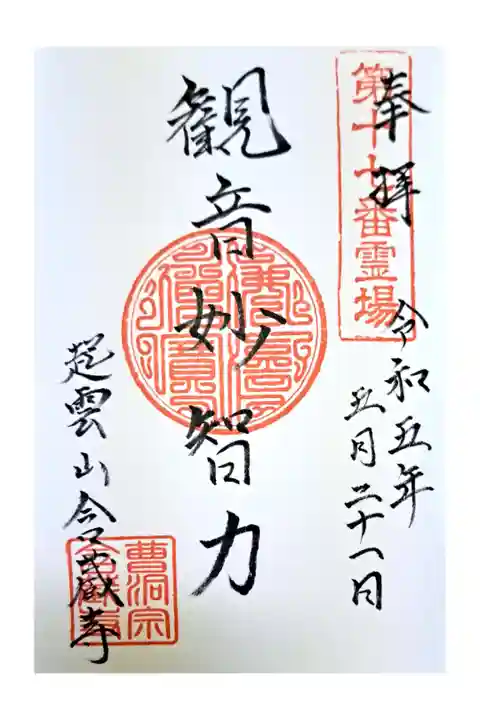 奉拝
第十七番霊場
令和五年
五月二十一日
観音妙智力
起雲山含蔵寺
曹洞宗
含蔵寺